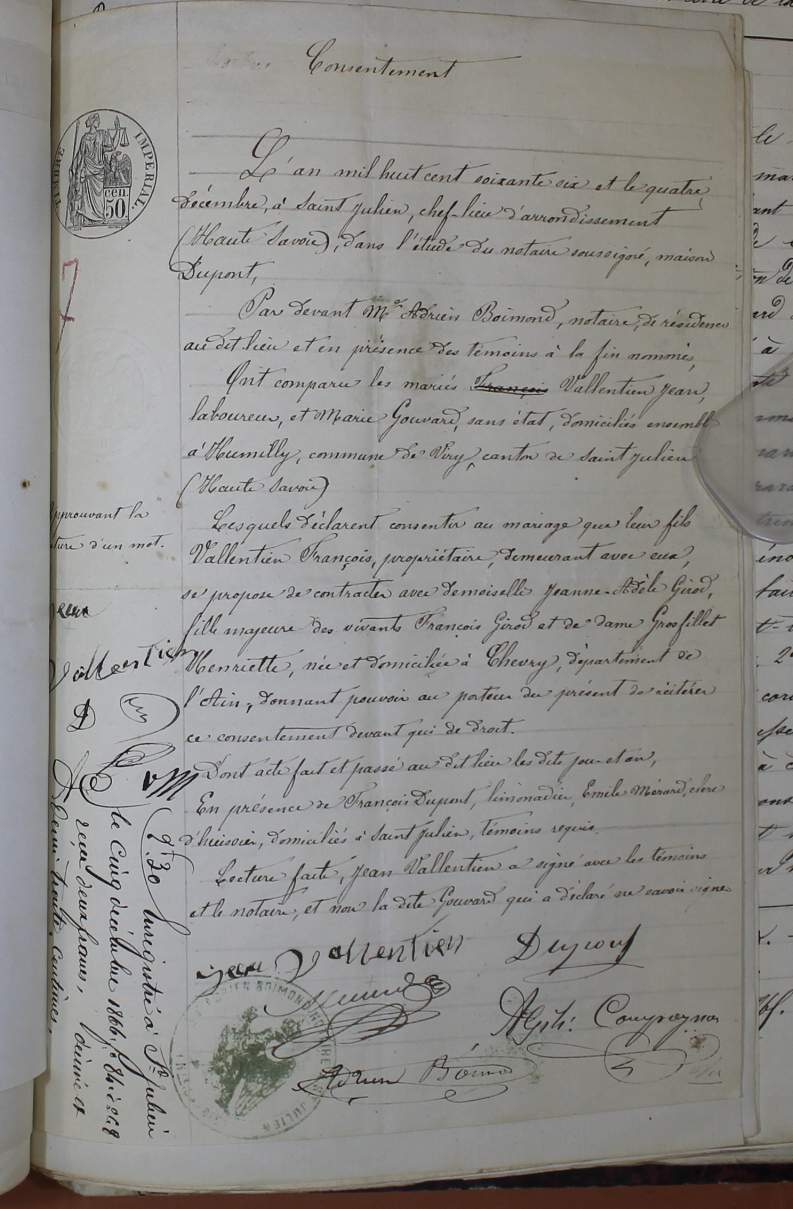 Consentement
TIMBRE IMPERIAL
50 cen
L'an mil huit cent soixante six et le quatre
Décembre, à Saint Julien, chef-lieu d'arrondissement
(Haute Savoie), dans l'étude du notaire soussigné, maison
Dupont,
Par devant Me Adrien Boimond, notaire, de résidence
au dit lieu et en présence des témoins à la fin nommés,
Ont comparu les mariés François Vallentien Jean,
laboureur, et Marie Gouvard, sans état, domiciliés ensemble
à Humilly, commune de Viry, canton de Saint Julien
(Haute Savoie)
Lesquels déclarent consentir au mariage que leur fils
Vallentien François, propriétaire, demeurant avec eux,
se propose de contracter avec demoiselle Jeanne-Adèle Girod,
fille majeure des vivants François Girod et de dame Grosfillet
Henriette, née et domiciliée à Chevry, département de
l'Ain, donnant pouvoir au porteur du présent de réitérer
ce consentement devant qui de droit.
Dont acte fait et passé au dit lieu les dits jour et an,
En présence de François Dupont, limonadier, Emile Mérard, clerc
d'huissier, domiciliés à Saint Julien, témoins requis.
Lecture faite, Jean Vallentien a signé avec les témoins
et le notaire, et non la dite Gouvard qui a déclaré ne savoir signer
Jean Vallentien Dupont
Adrien Boimond
pprouvant la
ture d'un mot.
jean
vallentien
D
Enregistré à St Julien
le cinq décembre 1866, fo
reçu deux francs, décime et
demi trente centimes,
ADRIEN BOIMOND NOTAIRE
JULIEN